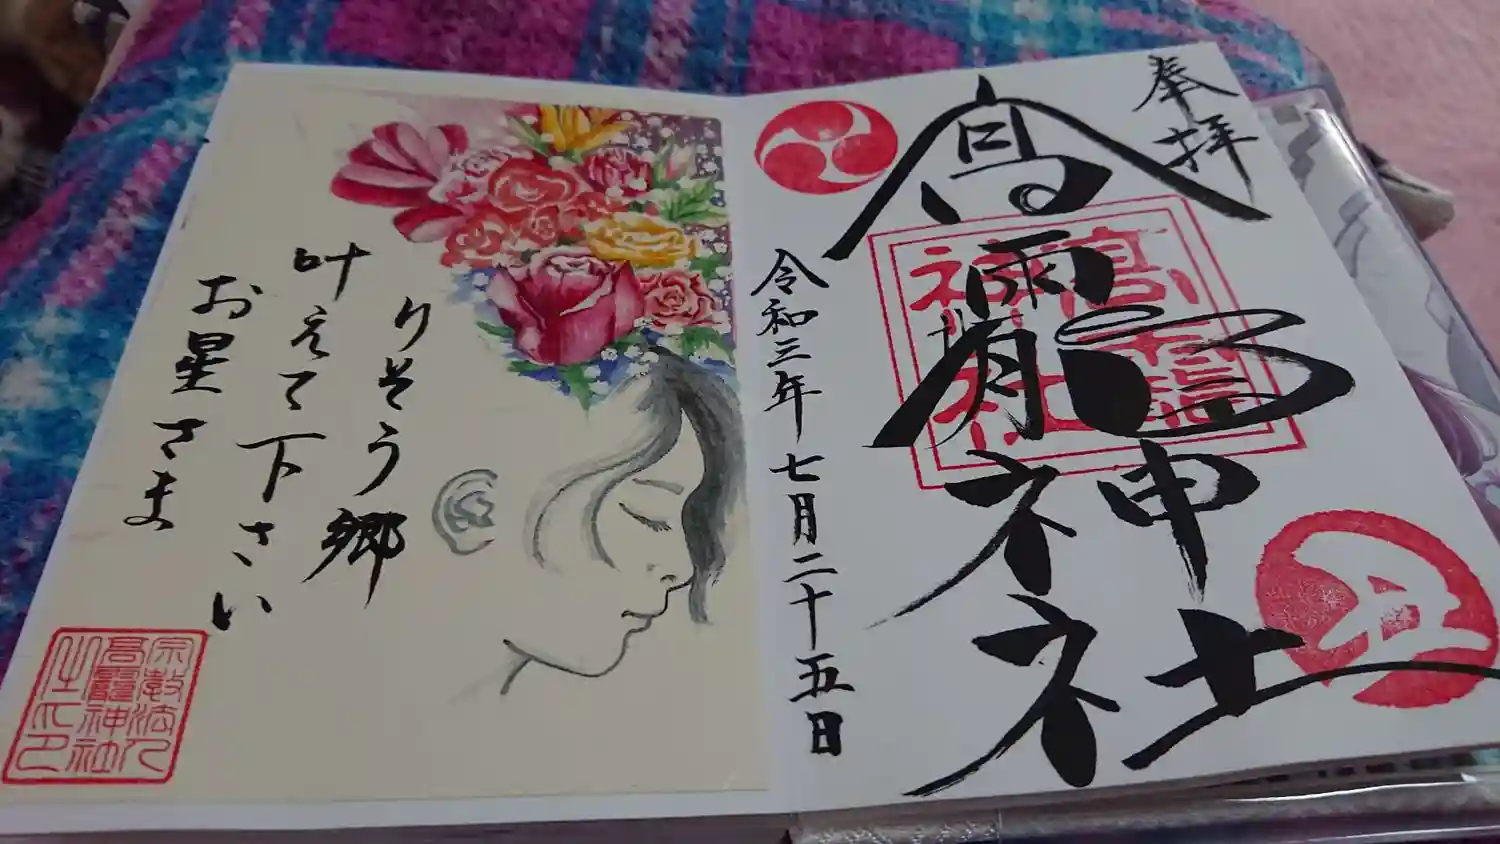 奉拝
高龗神社
高龗神社
丑
令和三年七月二十五日
りそう郷
叶えて下さい
お星さま
宗教法人
高龗神社
之印